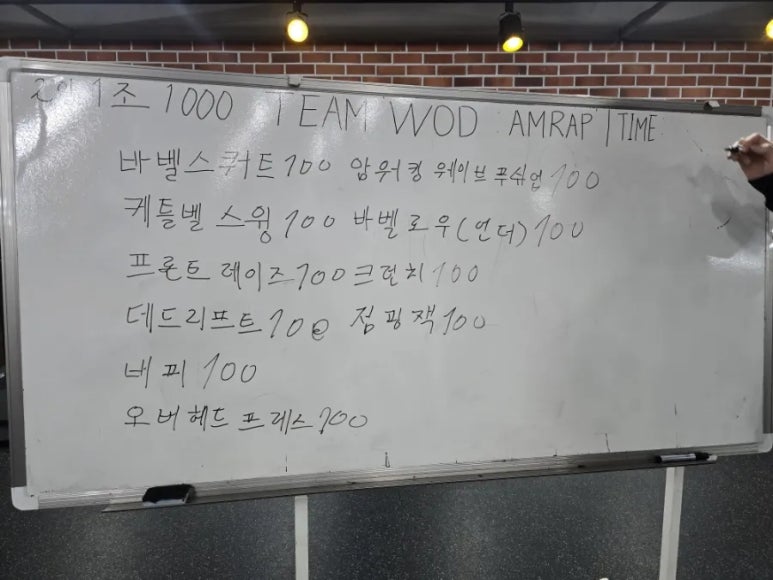 2인 1조 1000 TEAM WOD : AMRAP | TIME
바벨스쿼트 100 암워킹 웨이브 푸쉬업 100
케틀벨 스윙 100 바벨로우(언더) 100
프론트 레이즈 100 크런치 100
데드리프트 100 점핑잭 100
버피 100
오버헤드 프레스 100